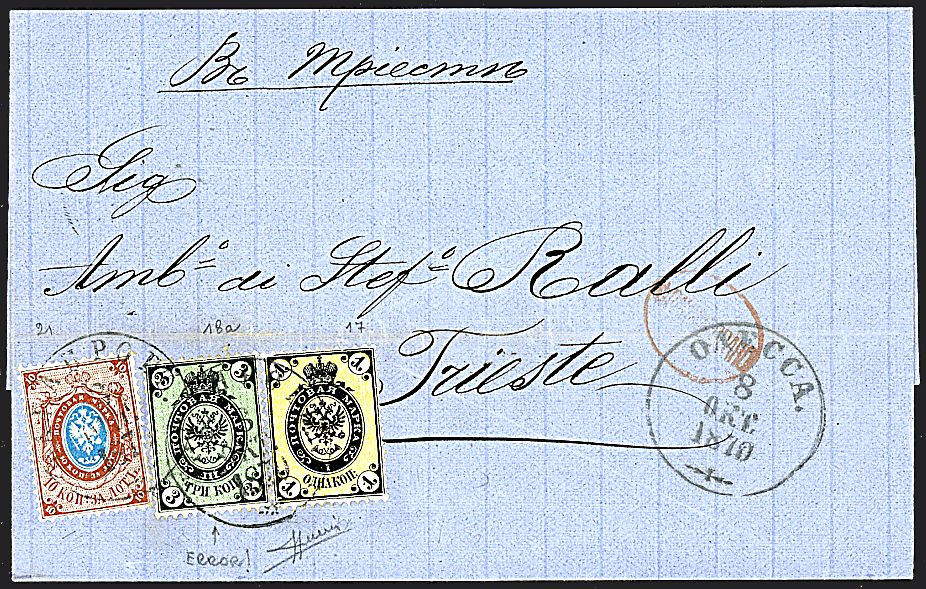 Въ Тріестъ
Sig
Ambº di Stefº Ralli
Trieste
21
18a
17
ОДЕССА.
8
ОКТ.
1870
10 КОП. ЗА ЛОТЪ.
3 3
ПОЧТОВАЯ МАРКА
ТРИ КОП.
3 3
1 1
ПОЧТОВАЯ МАРКА
1
ОДНА КОП.
1 1
ERROR!